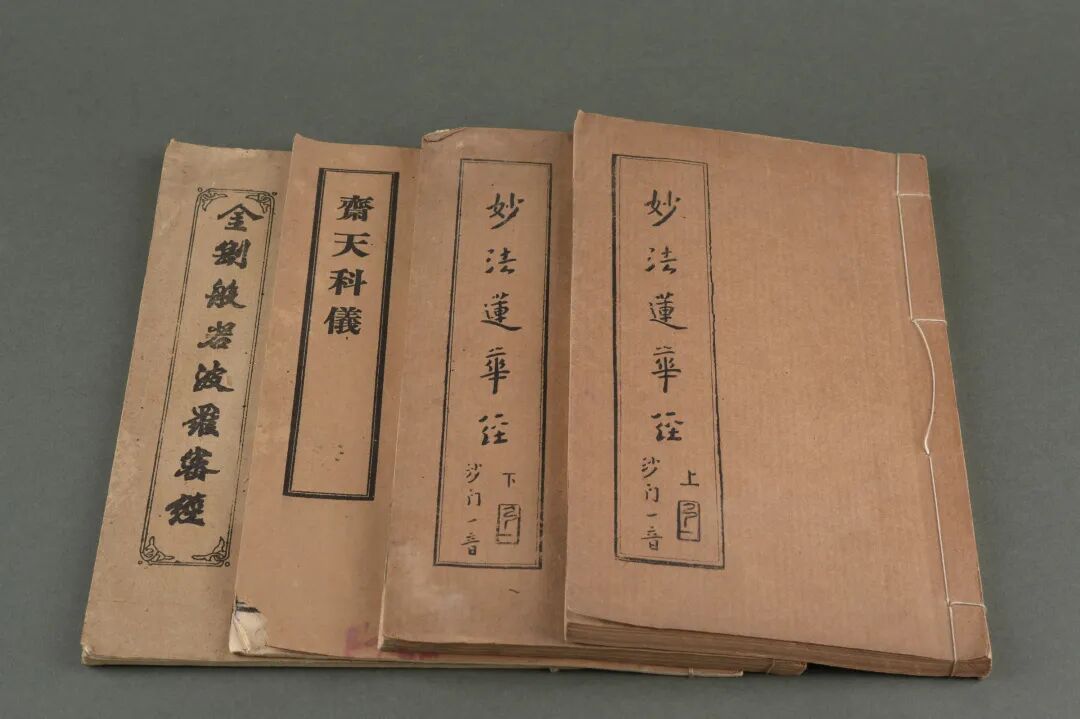 妙法蓮華經
上
沙门一音
妙法蓮華經
下
沙门一音
齋天科儀
金剛般若波羅蜜經